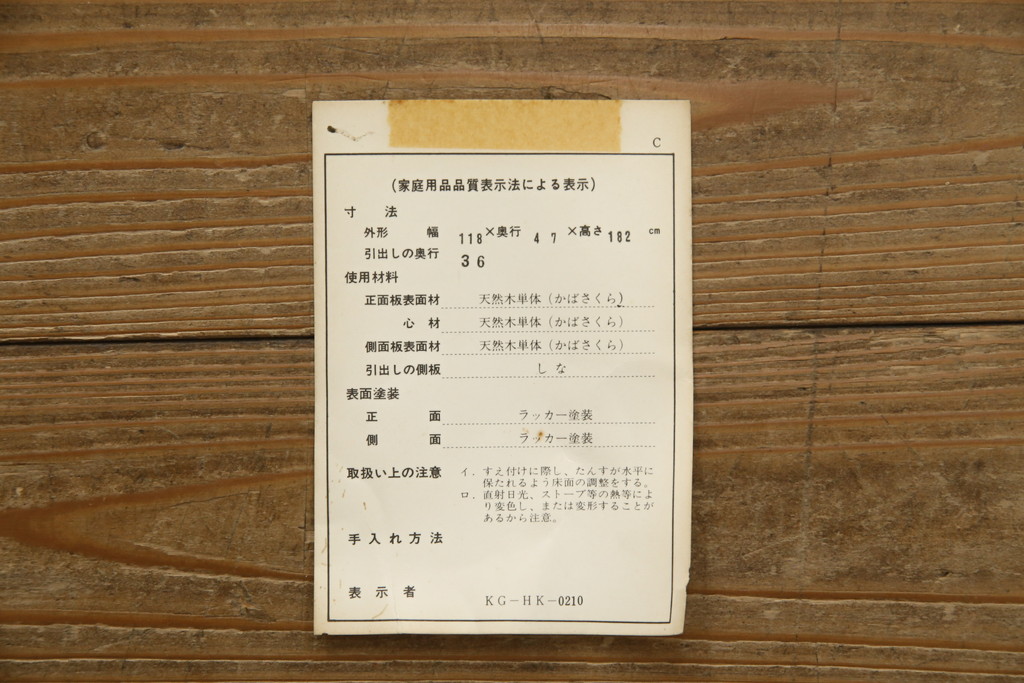 C
(家庭用品品質表示法による表示)
寸 法
外形 幅 118×奥行 47×高さ182 cm
引出しの奥行 36
使用材料
正面板表面材 天然木単体(かばさくら)
心 材 天然木単体(かばさくら)
側面板表面材 天然木単体(かばさくら)
引出しの側板 しな
表面塗装
正 面 ラッカー塗装
側 面 ラッカー塗装
取扱い上の注意 イ.すえ付けに際し、たんすが水平に
保たれるよう床面の調整をする。
ロ.直射日光、ストーブ等の熱等によ
り変色し、または変形することが
あるから注意。
手入れ方法
表 示 者 KG-HK-0210